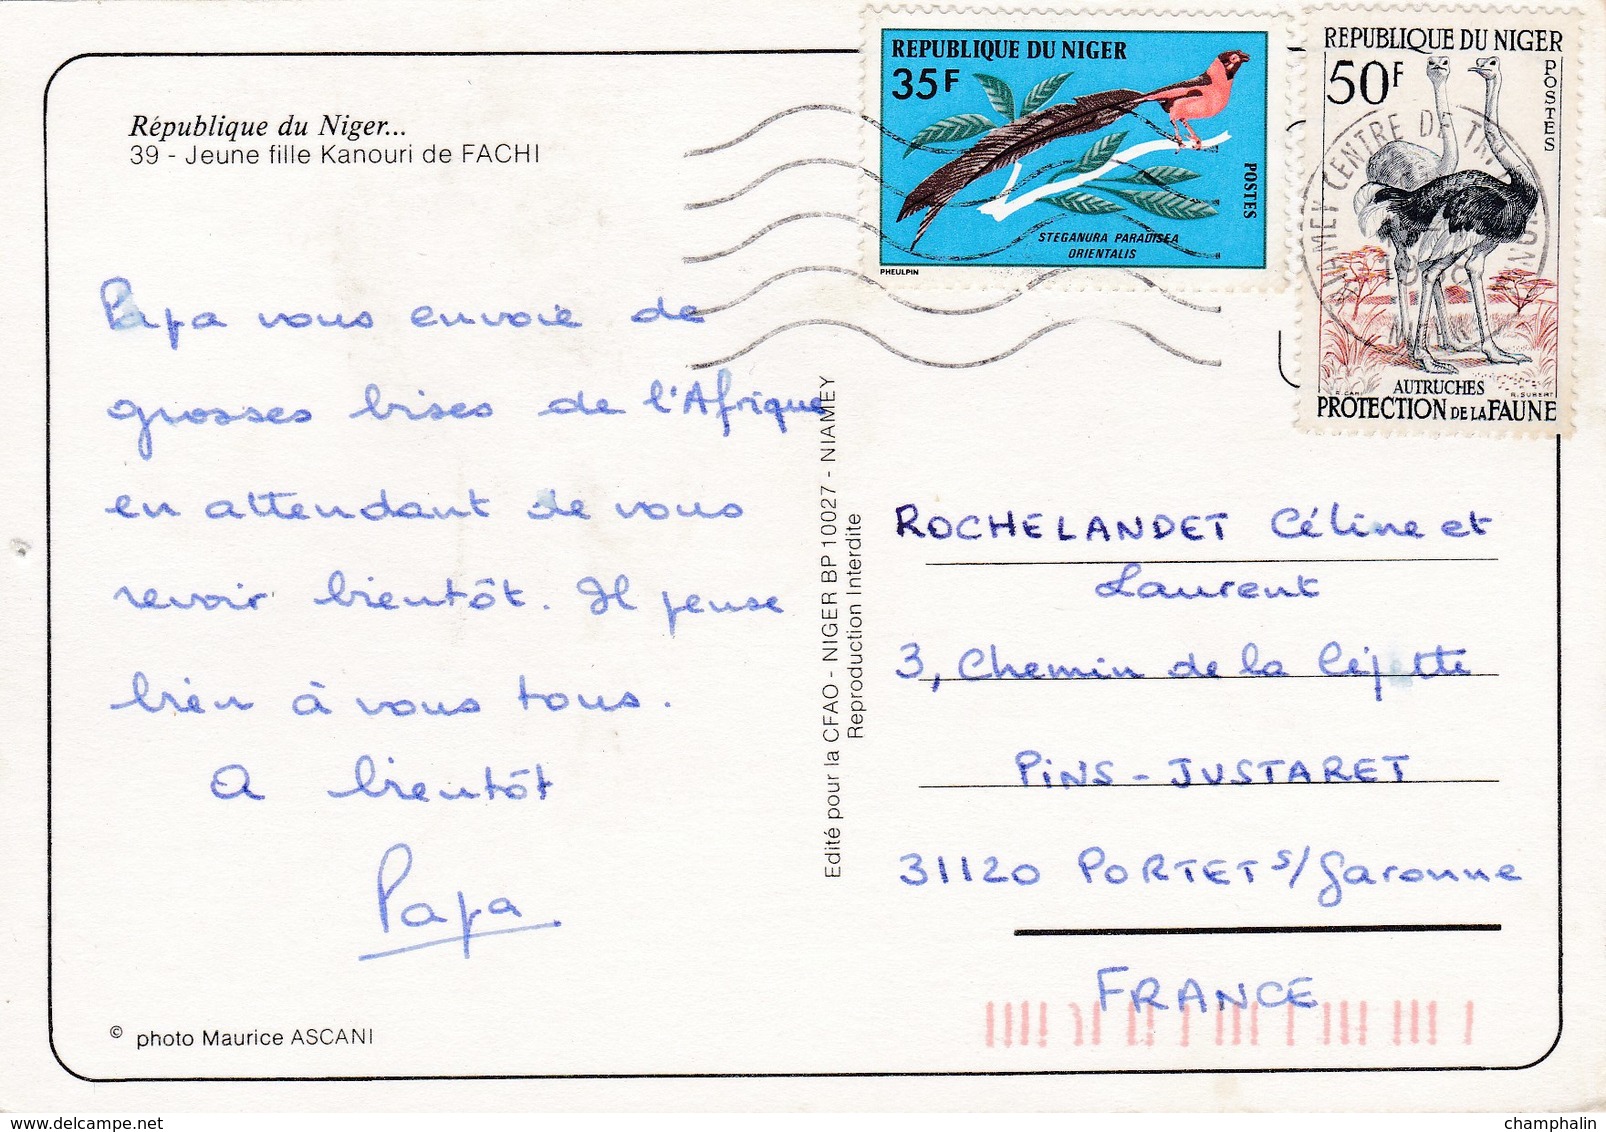 République du Niger...
39 - Jeune fille Kanouri de FACHI
Papa vous envoie de
grosses bises de l'Afrique
en attendant de vous
revoir bientôt. Il pense
bien à vous tous.
A bientôt
Papa
© photo Maurice ASCANI
Edité pour la CFAO - NIGER BP 10027 - NIAMEY
Reproduction Interdite
REPUBLIQUE DU NIGER
35F
POSTES
STEGANURA PARADISEA
ORIENTALIS
PHEULPIN
REPUBLIQUE DU NIGER
50F
POSTES
AUTRUCHES
R. SUBERT
PROTECTION DE LA FAUNE
NIAMEY CENTRE DE TRI
ROCHELANDET Céline et
Laurent
3, Chemin de la
PINS - JUSTARET
31120 PORTET s/Garonne
FRANCE
champhalin